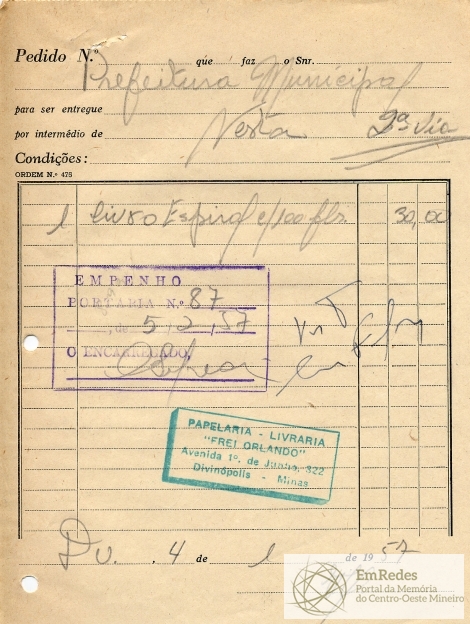 Pedido N.º que faz o Snr.
Prefeitura Municipal
para ser entregue
por intermédio de Nesta 2ª via
Condições:
ORDEM N.º 475
1 livro Espiral c/100 fls 30,00
EMPENHO
PORTARIA N.º 87
, de 5/2, 57
O ENCARREGADO
PAPELARIA - LIVRARIA
"FREI ORLANDO"
Avenida 1º. de Junho, 322
Divinópolis - Minas
Div. , 4 de 1 de 1957
EmRedes
Portal da Memória
do Centro-Oeste Mineiro